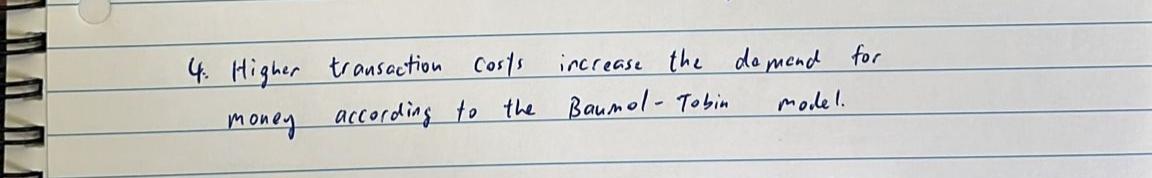 4. Higher transaction costs increase the demand for
money according to the Baumol-Tobin model.